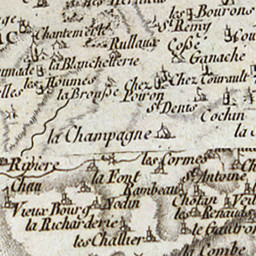 les Bourons
St Remy
Chantemerle
Rullaux
Cosse
Ganache
la Blanchetterie
les Houmes
Chez Pouron
Chez Courault
la Brousse
St Denis
Cochin
la Champagne
Riviere
les Cormes
Chau
la Font
Rambeau
St Antoine
Vieux Bourg
Nodin
Chotan
la Richarderie
les Renaud
les Challier
le Gautron
la Combe